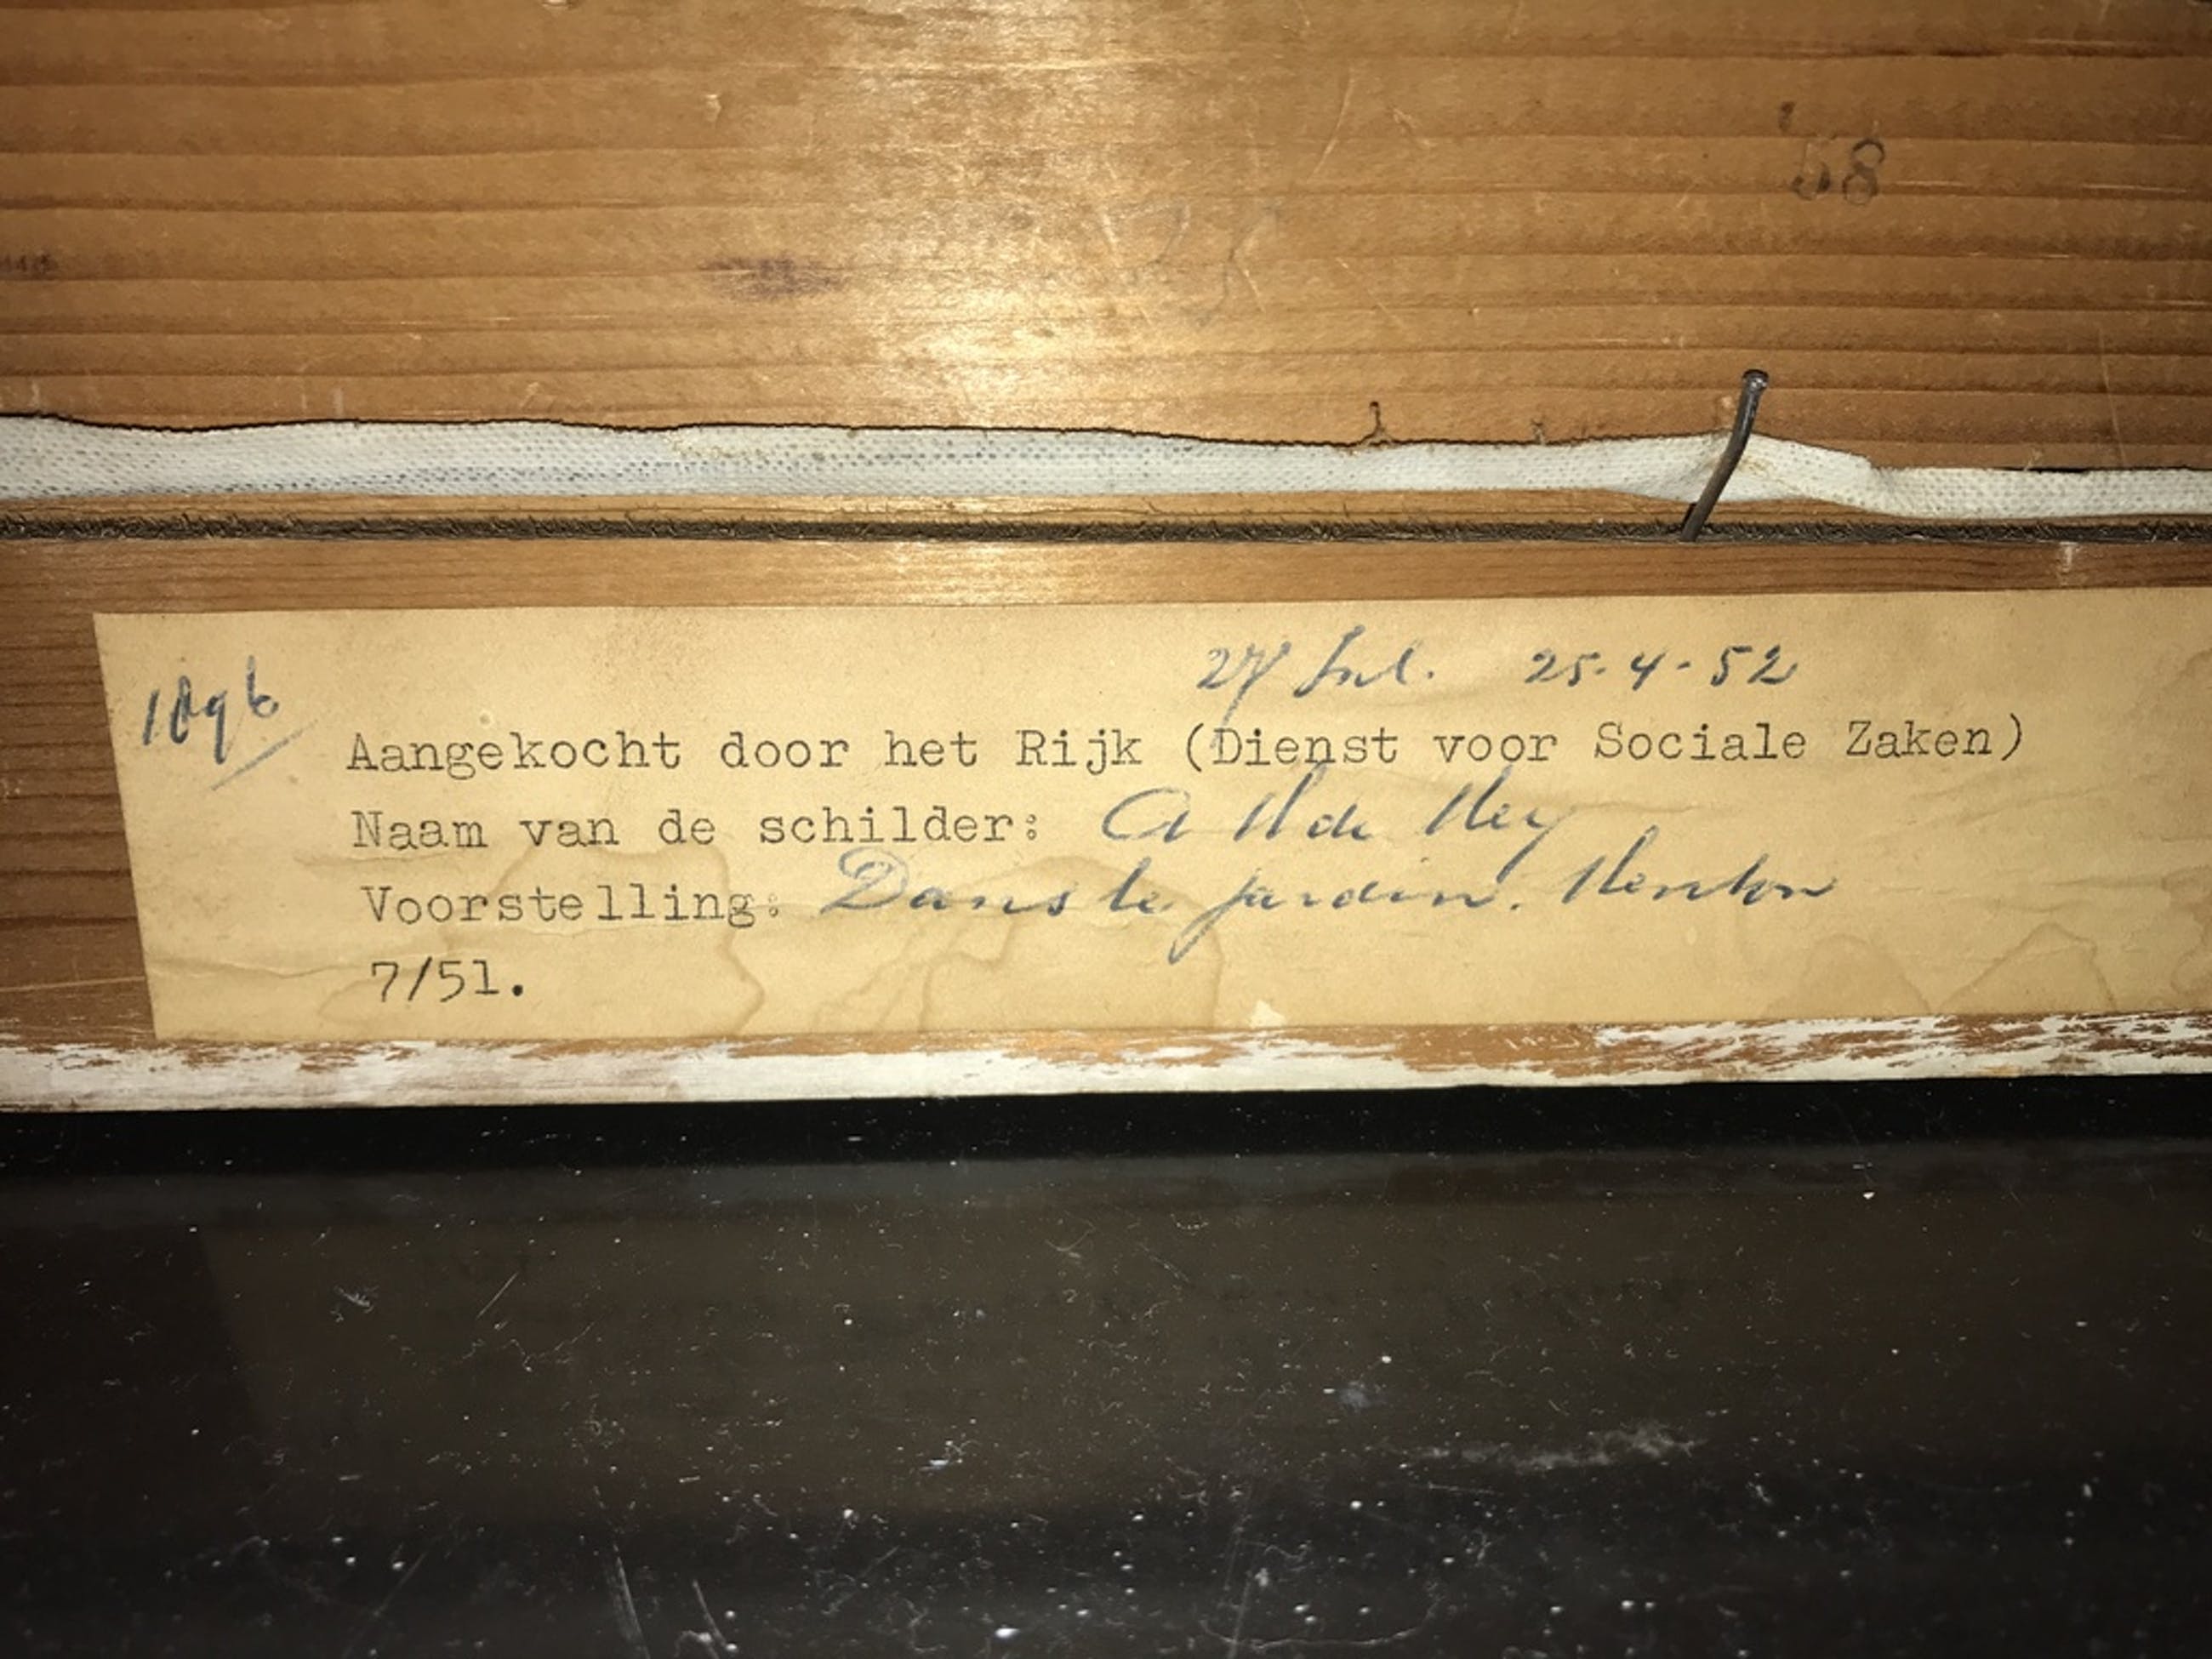 '58
27 Jul. 25-4-52
1896
Aangekocht door het Rijk (Dienst voor Sociale Zaken)
Naam van de schilder: A M de Mey
Voorstelling: Dans le jardin. Menton
7/51.